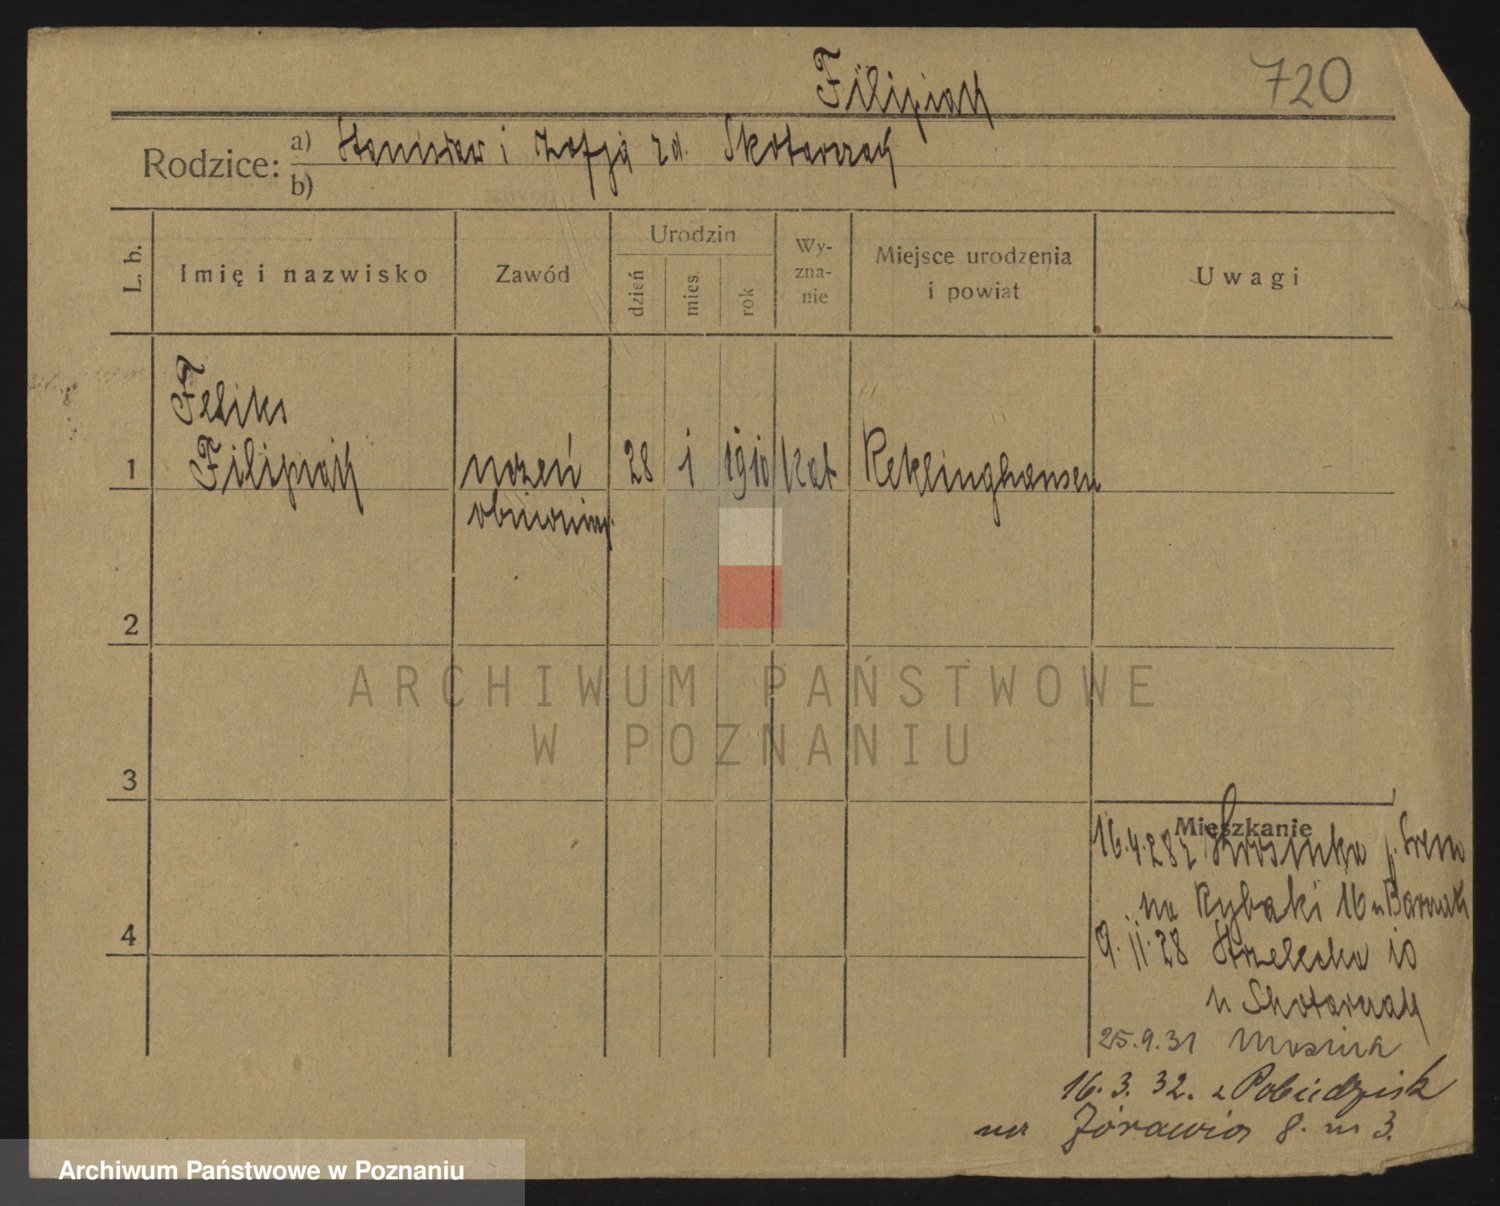 Filipiak
720
Rodzice: a) Stanisław i Zofja zd. Skotarczak
b)
L. b.
Imię i nazwisko
Zawód
Urodzin
dzień
mies.
rok
Wy-
zna-
nie
Miejsce urodzenia
i powiat
Uwagi
Feliks
1 Filipiak uczeń 28 1 1910 kat Reklinghausen
2
ARCHIWUM PAŃSTWOWE
W POZNANIU
3
Mieszkanie
16.4.28 z Krosinka p. Śrem
na Rybaki 16 u Barczak
4
9.11.28 Strzelecka 10
u Skotarczak
25.9.31 Mosina
16.3.32. z Pobiedzisk
na Żórawia 8. m 3.
Archiwum Państwowe w Poznaniu